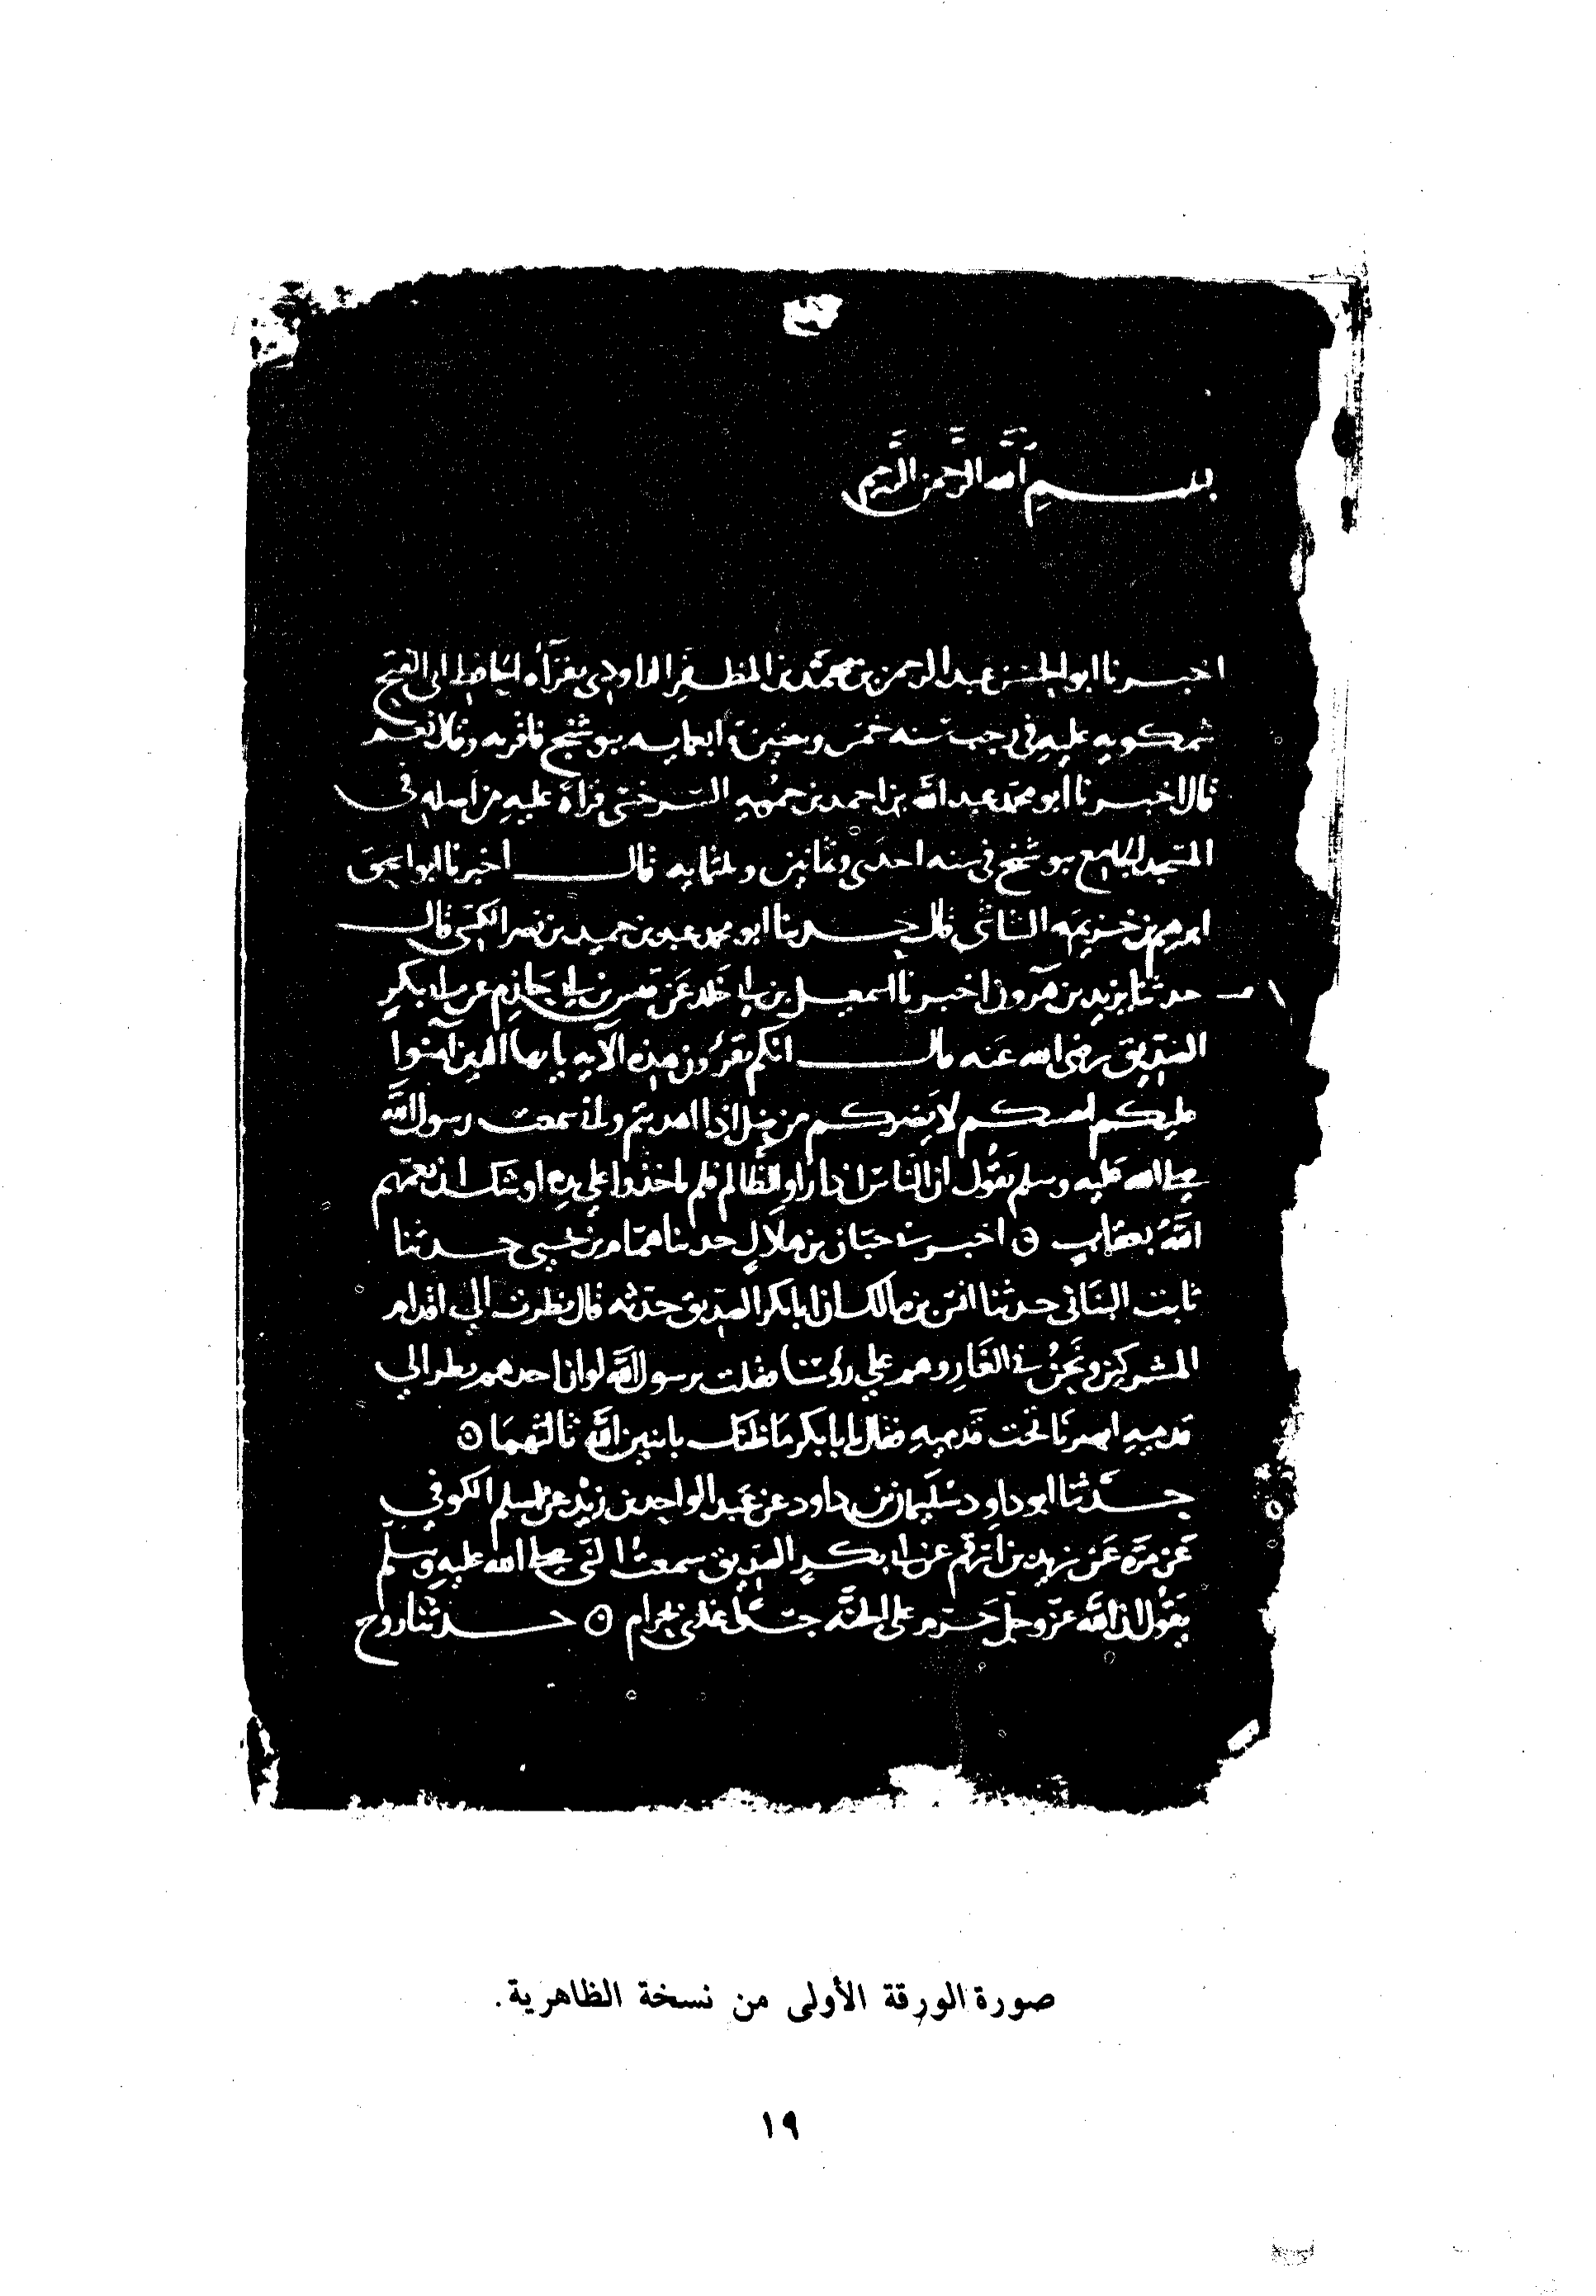 بسم الله الرحمن الرحيم
اخبرنا ابو الحسن عبد الرحمن بن محمد بن المظفر الداودي بقراه الحافظ ابي الفتح
سمكويه عليه في رجب سنه خمس وستين واربعمايه ببوشنج فاقر به وقال نعم
قال اخبرنا ابو محمد عبد الله بن احمد بن حمويه السرخسي قراة عليه من اصله في
المسجد الجامع ببوشنج في سنه احدى وثمانين وثلثمايه قال اخبرنا ابو اسحق
ابرهيم بن خزيمه الشاشي قال حدثنا ابو محمد عبد بن حميد بن نصر الكسي قال
١ حدثنا يزيد بن هرون اخبرنا اسمعيل بن ابي خلد عن قيس بن ابي حازم عن ابي بكر
الصديق رضي الله عنه قال انكم تقرؤون هذه الآيه يا يها الذين آمنوا
عليكم انفسكم لا يضركم من ضل اذا اهديتم واني سمعت رسول الله
صلى الله عليه وسلم يقول ان الناس اذا راوا الظالم فلم ياخذوا على يده اوشك ان يعمهم
الله بعقاب ۞ اخبرني حبان بن هلال حدثنا همام بن يحيى حدثنا
ثابت البناني حدثنا انس بن مالك ان ابا بكر الصديق حدثه قال نظرت الي اقدام
المشركين ونحن في الغار وهم علي رؤسنا فقلت يرسول الله لو ان احدهم نظر الي
قدميه ابصرنا تحت قدميه فقال يا با بكر ما ظنك باثنين الله ثالثهما ۞
حدثنا ابو داود سليمان بن داود عن عبد الواحد بن زيد عن اسلم الكوفي
عن مره عن زيد بن ارقم عن ابي بكر الصديق سمعت النبي صلى الله عليه وسلم
يقول ان الله عز وجل حرم على الجنه جسدا غذي بحرام ۞ حدثنا روح
صورة الورقة الأولى من نسخة الظاهرية.
١٩